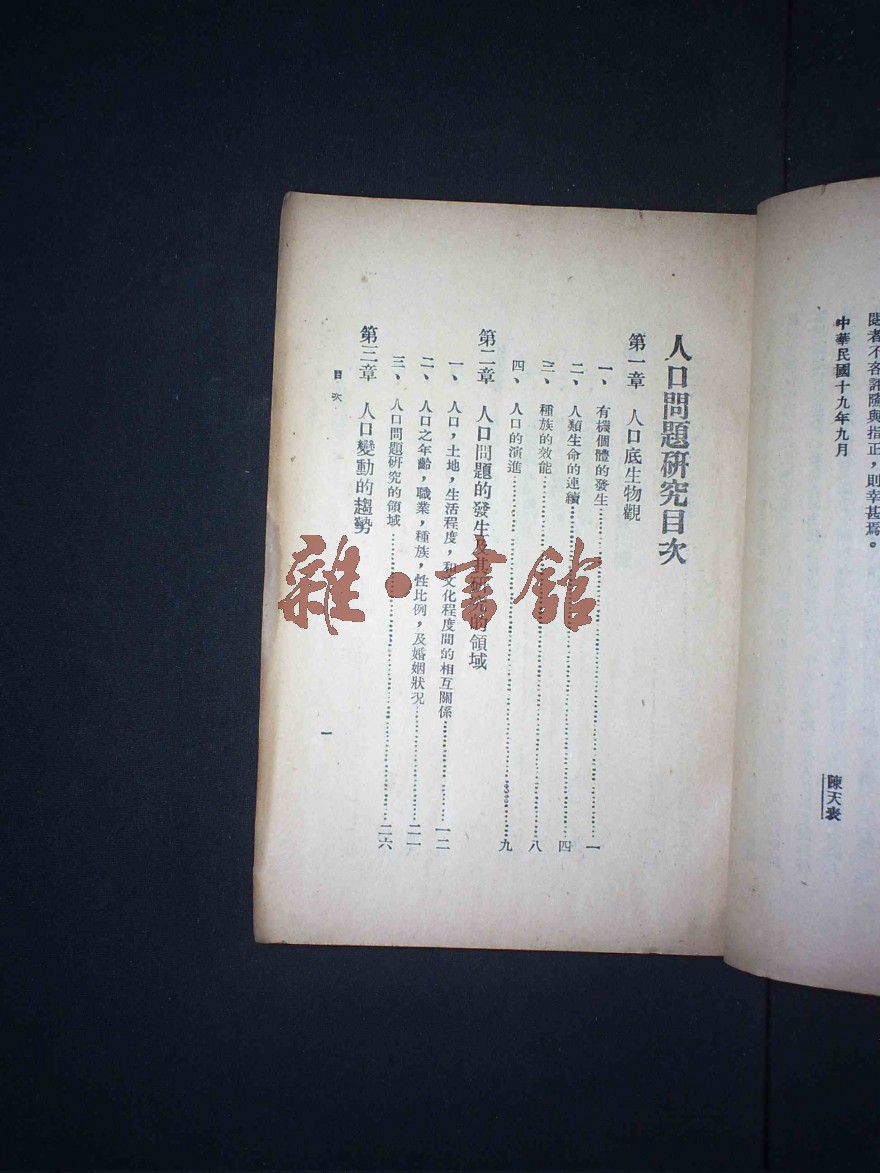 閱者不吝評隲與指正，則幸甚焉。
中華民國十九年九月
陳天表
人口問題研究目次
第一章　人口底生物觀
一、有機個體的發生……一
二、人類生命的連續……四
三、種族的效能……八
四、人口的演進……九
第二章　人口問題的發生及其研究的領域
一、人口，土地，生活程度，和文化程度間的相互關係……一二
二、人口之年齡，職業，種族，性比例，及婚姻狀況……二一
三、人口問題研究的領域……二六
第三章　人口變動的趨勢
目次
一
雜·書館